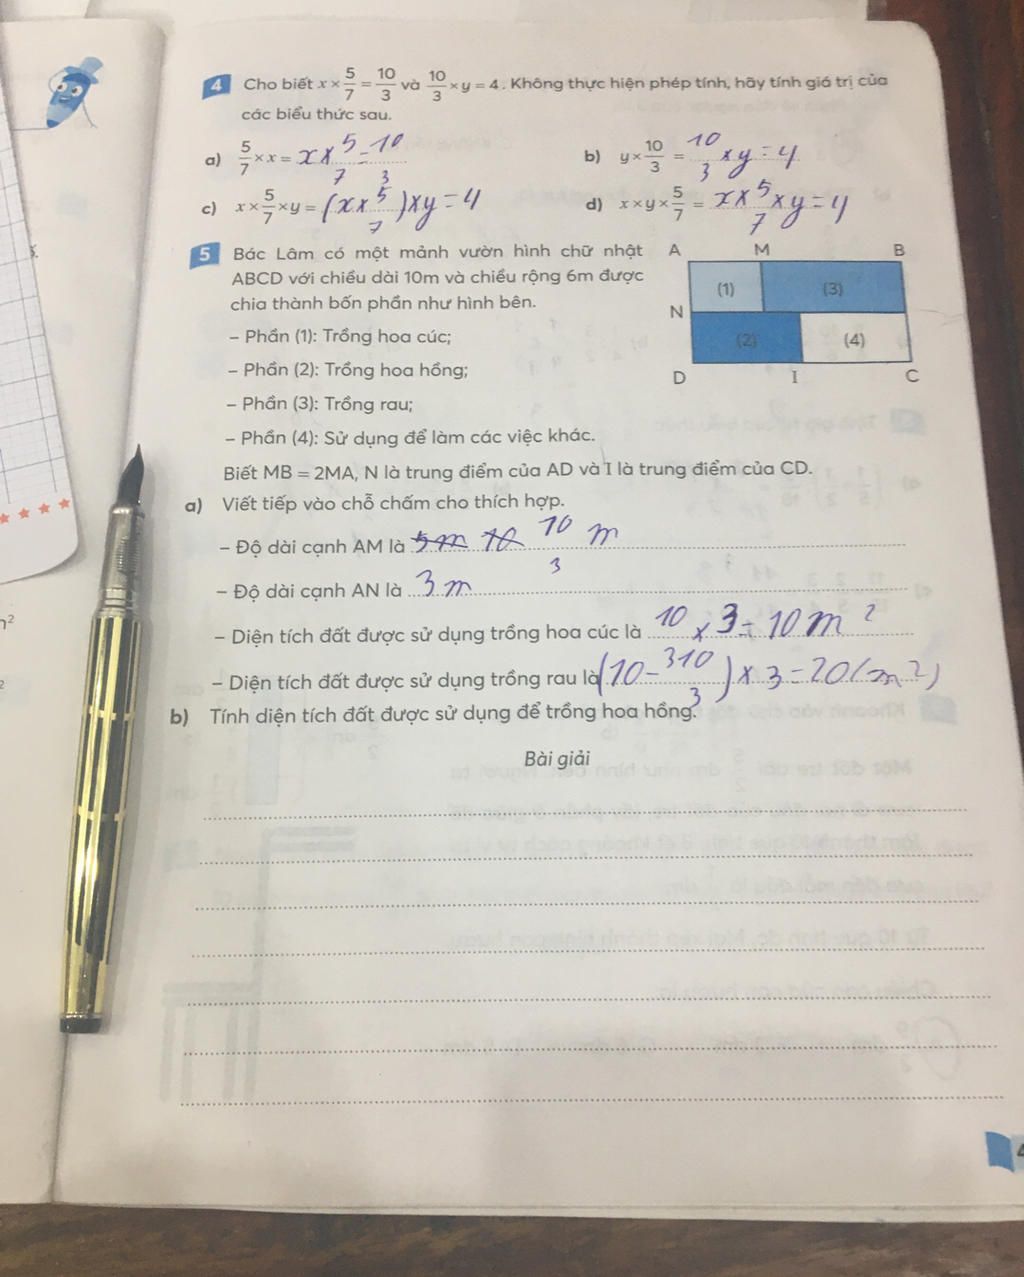 4 Cho biết x × 5/7 = 10/3 và 10/3 × y = 4. Không thực hiện phép tính, hãy tính giá trị của
các biểu thức sau.
a) 5/7 × x = x x 5/7 = 10/3
b) y × 10/3 = 10/3 x y = 4
c) x × 5/7 × y = (x x 5/7) x y = 4
d) x × y × 5/7 = x x 5/7 x y = 4
5 Bác Lâm có một mảnh vườn hình chữ nhật
ABCD với chiều dài 10m và chiều rộng 6m được
chia thành bốn phần như hình bên.
– Phần (1): Trồng hoa cúc;
– Phần (2): Trồng hoa hồng;
– Phần (3): Trồng rau;
– Phần (4): Sử dụng để làm các việc khác.
A M B
(1) (3)
N
(2) (4)
D I C
Biết MB = 2MA, N là trung điểm của AD và I là trung điểm của CD.
a) Viết tiếp vào chỗ chấm cho thích hợp.
– Độ dài cạnh AM là 5m 10 10/3 m
– Độ dài cạnh AN là 3 m
– Diện tích đất được sử dụng trồng hoa cúc là 10 x 3 = 10 m²
– Diện tích đất được sử dụng trồng rau là (10 - 310/3) x 3 = 20 (m2)
b) Tính diện tích đất được sử dụng để trồng hoa hồng.
Bài giải